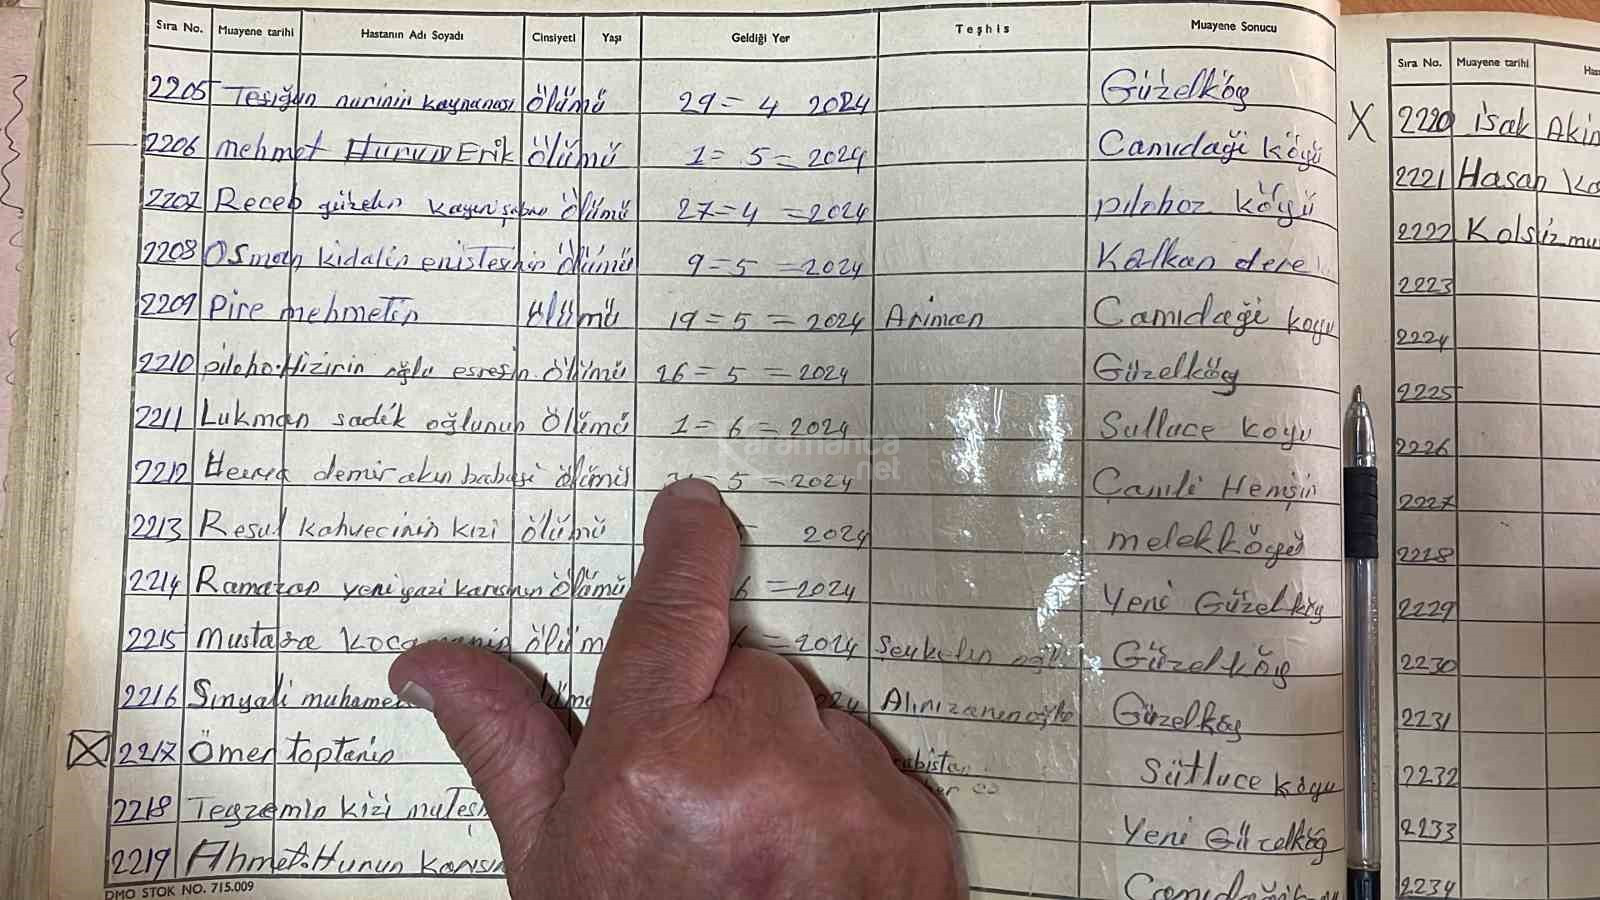 Sıra No. Muayene tarihi Hastanın Adı Soyadı Cinsiyeti Yaşı Geldiği Yer Teşhis Muayene Sonucu
2205 nurinin kaynanası ölümü 29 = 4 2024 Güzelköy
2206 mehmet Hunun Erik ölümü 1 = 5 = 2024 Camıdaği köyü
2207 Receb güzelin ölümü 27 = 4 = 2024 pılohoz köyü
2208 Osman kidalin enistesinin ölümü 9 = 5 = 2024 Kalkan dere
2209 Pire mehmetin ölümü 19 = 5 = 2024 Ariman Camıdaği koyu
2210 piloho Hizirin oğlu esresin ölümü 26 = 5 = 2024 Güzelköy
2211 Lukman sadık oğlunun ölümü 1 = 6 = 2024 Sulluce koyu
2212 demir akın babasi ölümü = 5 = 2024 Çamli Hemşin
2213 Resul kahvecinin kızi ölümü 2024 melekköyü
2214 Ramazan yeniyazi karısının ölümü 6 = 2024 Yeni Güzelköy
2215 Mustafa ölüm = 2024 Güzelköy
2216 Sınyali Güzelköy
2217 Ömer toptanin Sütluce koyu
2218 Teyzemin kizi Yeni Güzelköy
2219 Ahmet Hunun
DMO STOK NO. 715.009
Karamanca
.net
Sıra No. Muayene tarihi
X 2220 isak Akin
2221 Hasan
2222
2223
2224
2225
2226
2227
2228
2229
2230
2231
2232
2233
2234